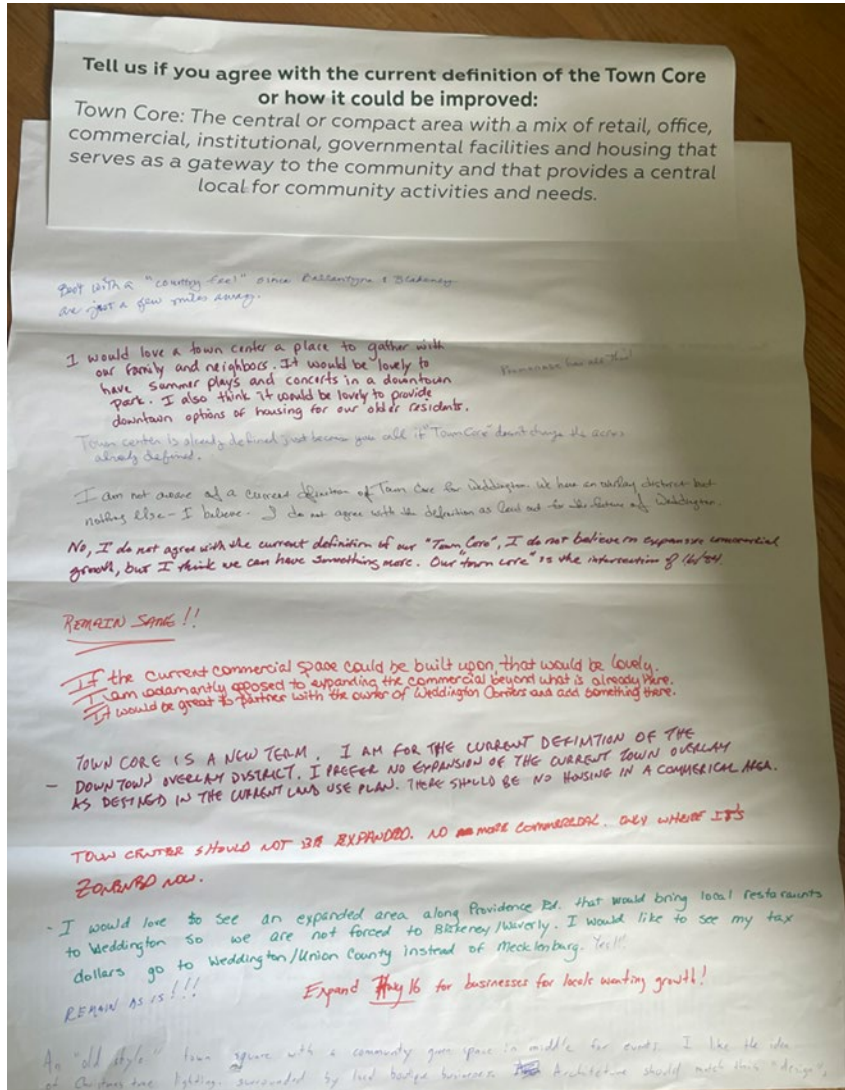 Tell us if you agree with the current definition of the Town Core
or how it could be improved:
Town Core: The central or compact area with a mix of retail, office,
commercial, institutional, governmental facilities and housing that
serves as a gateway to the community and that provides a central
local for community activities and needs.
Best with a "country feel" since Ballantyne & Blakeney
are just a few miles away.
I would love a town center a place to gather with
our family and neighbors. It would be lovely to
have summer plays and concerts in a downtown
park. I also think it would be lovely to provide
downtown options of housing for our older residents.
Promenade has all this!
Town center is already defined just because you call it "Town Core" doesn't change the acres
already defined.
I am not aware of a current definition of Town Core for Weddington. We have an overlay district but
nothing else - I believe. I do not agree with the definition as laid out for the future of Weddington.
No, I do not agree with the current definition of our "Town Core", I do not believe in expansive commercial
growth, but I think we can have something more. Our "town core" is the intersection of 16/84.
REMAIN SAME!!
If the current commercial space could be built upon that would be lovely.
I am adamantly opposed to expanding the commercial beyond what is already here.
It would be great to partner with the owner of Weddington Corners and add something there.
TOWN CORE IS A NEW TERM. I AM FOR THE CURRENT DEFINTION OF THE
- DOWNTOWN OVERLAY DISTRICT. I PREFER NO EXPANSION OF THE CURRENT TOWN OVERLAY
AS DESINED IN THE CURRENT LAND USE PLAN. THERE SHOULD BE NO HOUSING IN A COMMERICAL AREA.
TOWN CENTER SHOULD NOT BE EXPANDED. NO MORE COMMERCIAL. ONLY WHERE IT'S
ZONENED NOW.
- I would love to see an expanded area along Providence Rd. that would bring local restaraunts
to Weddington so we are not forced to Blakeney/Waverly. I would like to see my tax
dollars go to Weddington/Union County instead of Mecklenburg. Yes!!
REMAIN AS IS!!!
Expand Hwy 16 for businesses for locals wanting growth!
An "old style" town square with a community green space in middle for events. I like the idea
of Christmas time lighting surrounded by local boutique businesses. Architecture should match this "design",